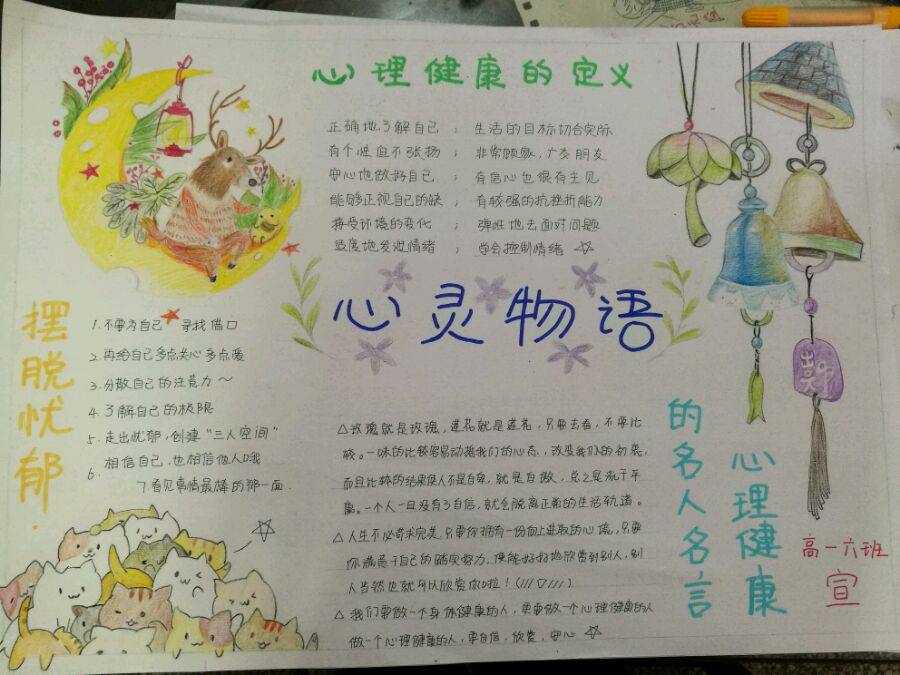 心理健康的定义
正确地了解自己； 生活的目标切合实际
有个性但不张扬； 非常顾家，广交朋友
安心地做好自己； 有信心也很有主见
能够正视自己的缺； 有较强的抗挫折能力
接受环境的变化； 弹性地去面对问题
适度地发泄情绪； 学会控制情绪☆
心灵物语
摆脱忧郁.
1.不要为自己 寻找借口
2.再给自己多点关心多点爱
3.分散自己的注意力～
4.了解自己的极限
5.走出忧郁，创建“三人空间”
6.相信自己，也相信他人哦
7.看见事情最棒的那一面
△玫瑰就是玫瑰，莲花就是莲花，只要去看，不要比
较。一味的比较容易动摇我们的心态，改变我们的初衷，
而且比较的结果使人不是自卑，就是自傲，总之是流于平
庸。一个人一旦没有了自信，就会脱离正常的生活轨道。
△人生不必苛求完美，只要你拥有一份向上进取的心境，只要
你满意于自己的踏实努力，便能好好地欣赏到别人，别
人当然也就可以欣赏你啦！(///▽///)
△我们要做一个身体健康的人，更要做一个心理健康的人
做一个心理健康的人，要自信，欣赏，安心☆
心理健康
的名人名言
高一六班
宣